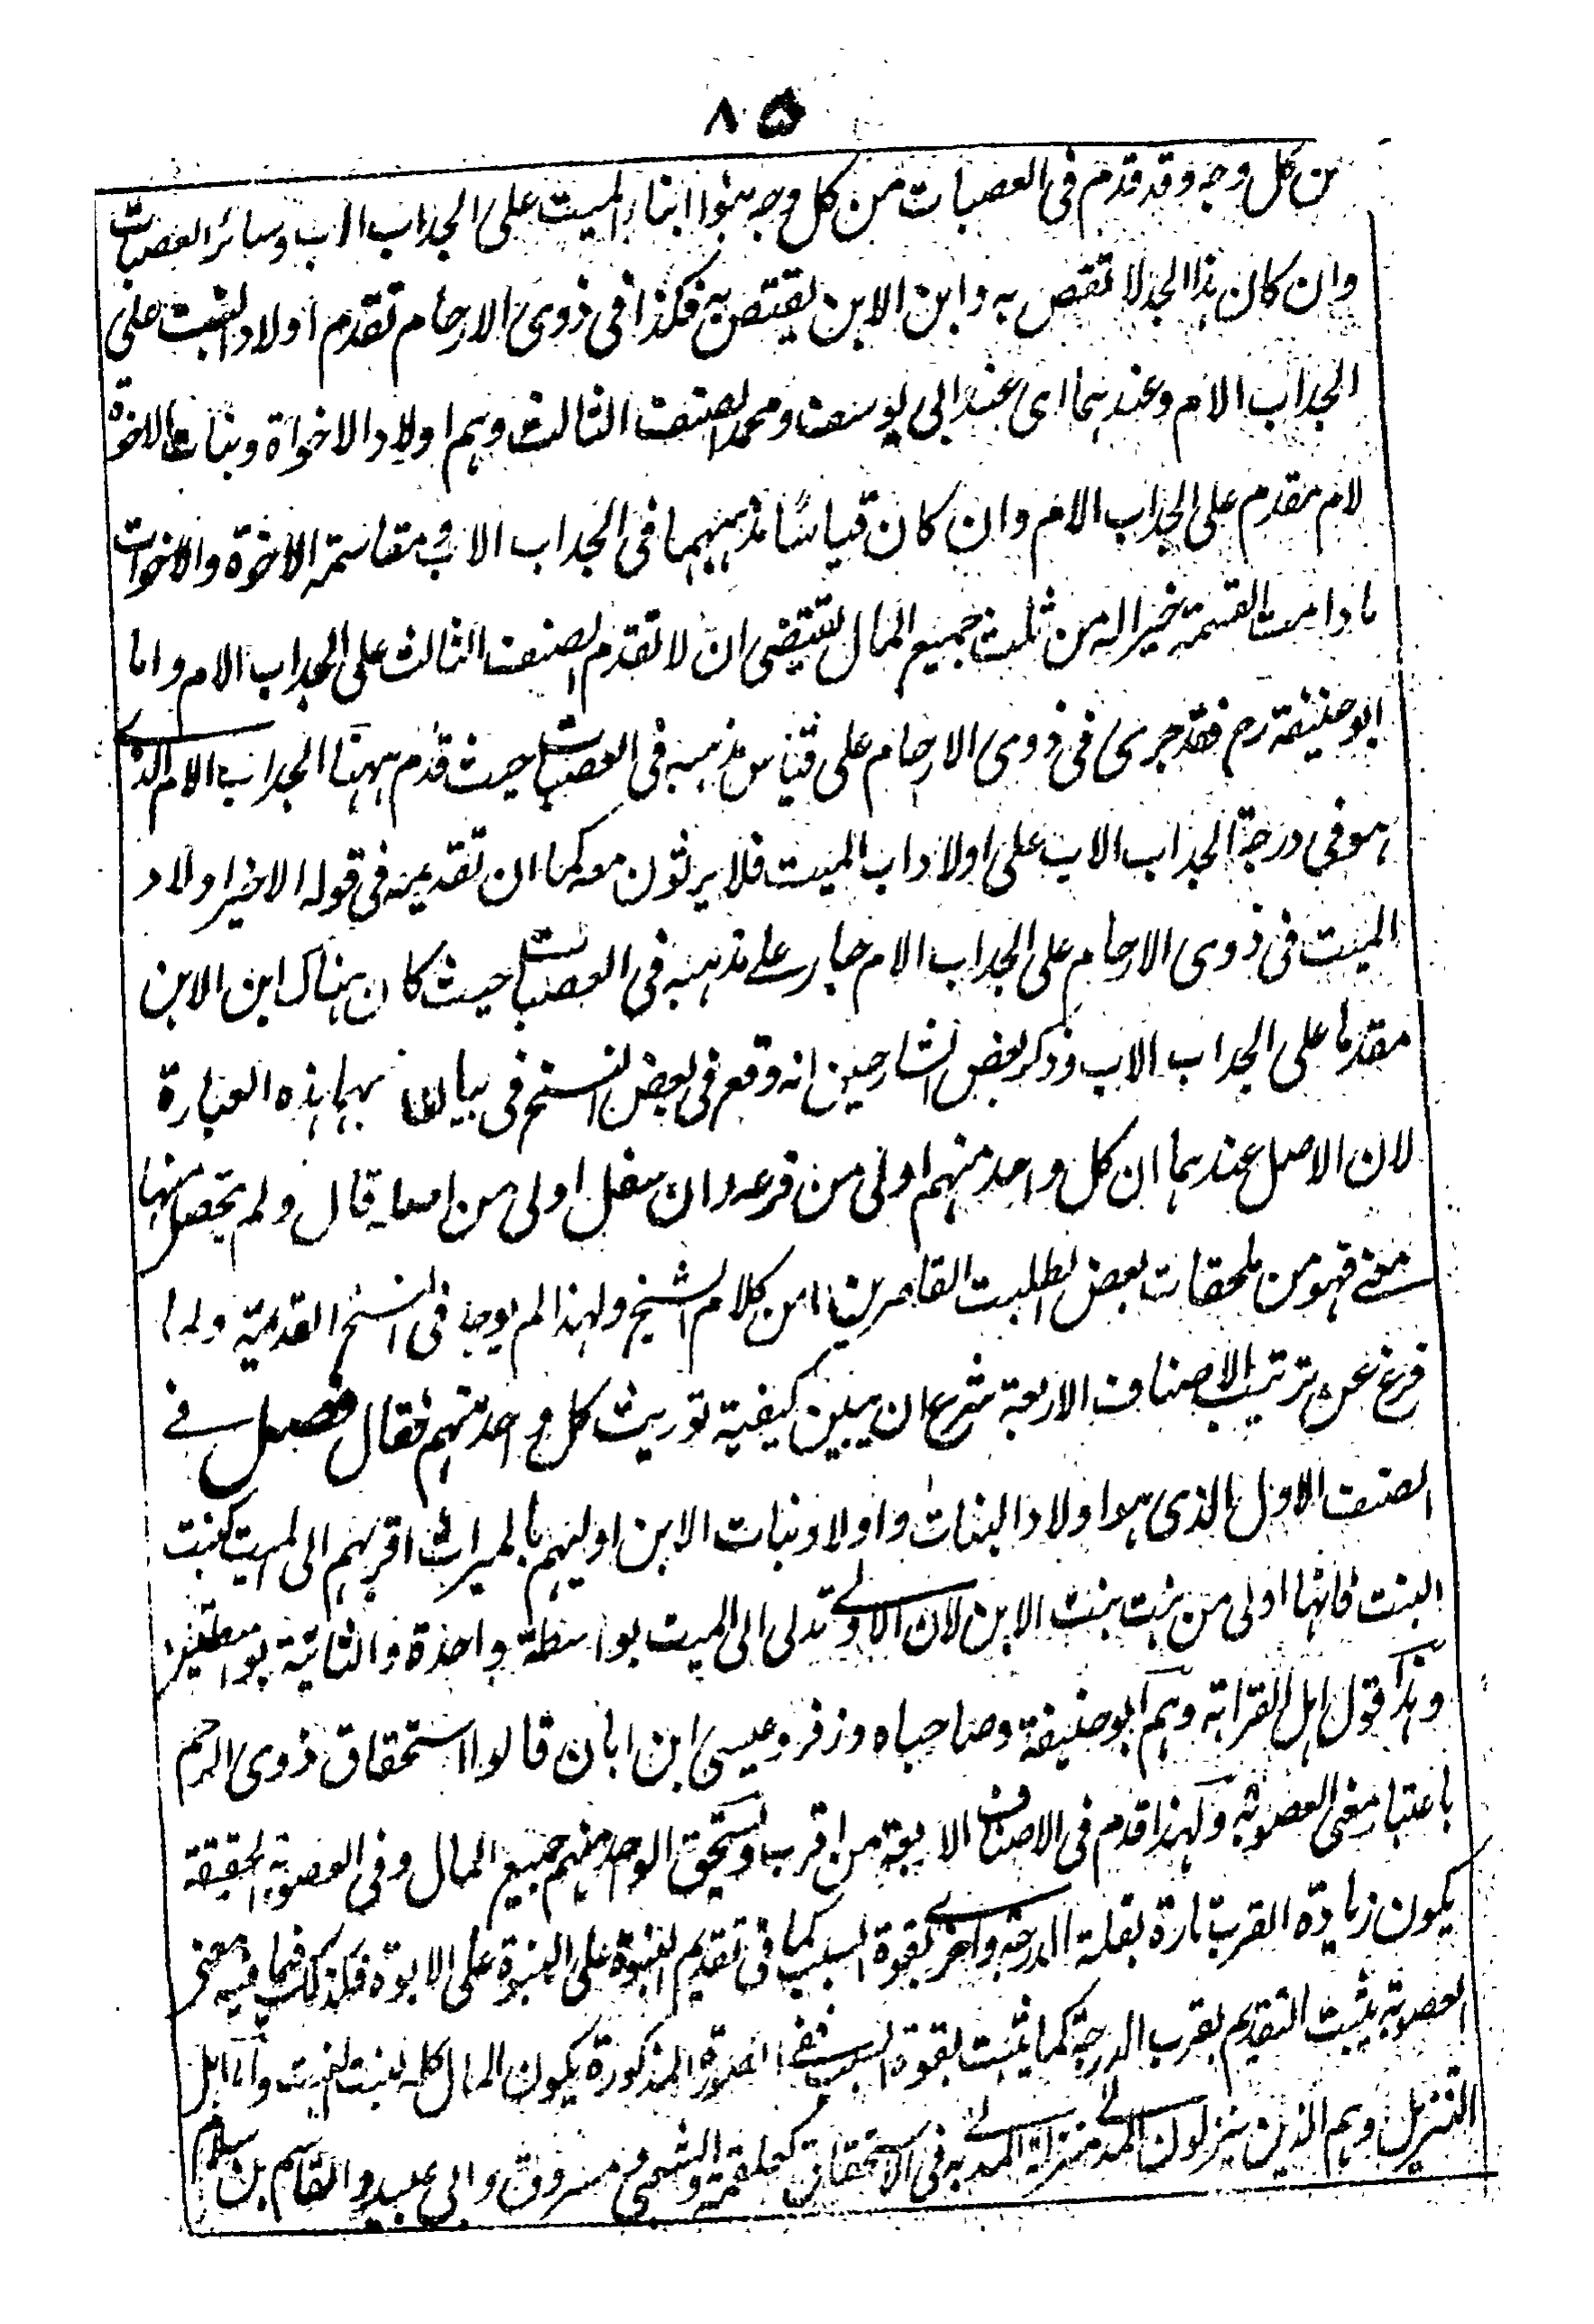 ۸۵
من كل وجه وقد قدم فى العصبات من كل وجه بنوا ابناء الميت على الجد اب الاب وسائر العصبات
وان كان هذا الجد لا تقص به وابن الابن يقتص به فكذا فى ذوى الارحام تقدم اولاد البنت على
الجد اب الام وعندهما اى عند ابى يوسف ومحمد الصنف الثالث وهم اولاد الاخواة وبنات الاخوة
لام مقدم على الجد اب الام وان كان قياسا مذهبهما فى الجد اب الاب فى مقاسمة الاخوة والاخوات
ما دامت القسمة خيرا له من ثلث جميع المال يقتضى ان لا تقدم الصنف الثالث على الجد اب الام واما
ابو حنيفة رح فقد جرى فى ذوى الارحام على قياس مذهبه فى العصبات حيث قدم ههنا الجد اب الام الذى
هو فى درجة الجد اب الاب على اولاد اب الميت فلا يرثون معه كما ان تقديمه فى قوله الاخير اولاد
الميت فى ذوى الارحام على الجد اب الام جار على مذهبه فى العصبات حيث كان هناك ابن الابن
مقدما على الجد اب الاب وذكر بعض الشارحين انه وقع فى بعض النسخ فى بيان هذه العبارة
لان الاصل عندهما ان كل واحد منهم اولى من فرعه وان سفل اولى من اصله قال ولم يحصل منها
معنى فهو من ملحقات بعض الطلبت القاصرين من كلام الشيخ ولهذا لم يوجد فى النسخ القديمة ولما
فرغ عن ترتيب الاصناف الاربعة شرع ان يبين كيفية توريث كل واحد منهم فقال فصل فى
الصنف الاول الذى هو اولاد البنات واولاد بنات الابن اوليهم بالميراث اقربهم الى الميت كبنت
البنت فانها اولى من بنت بنت الابن لان الاولى تدلى الى الميت بواسطة واحدة والثانية بواسطتين
وهذا قول اهل القرابة وهم ابو حنيفة وصاحباه وزفر وعيسى ابن ابان قالوا استحقاق ذوى الرحم
باعتبار معنى العصوبة ولهذا قدم فى الاصناف الاربعة من اقرب ويستحق الواحد منهم جميع المال وفى العصوبة الحقيقة
يكون زيادة القرب تارة بقلة الدرجة واخرى بقوة السبب كما فى تقديم البنوة على البنوة على الابوة فكذلك فيما فيه معنى
العصوبة يثبت التقديم بقرب الدرجة كما يثبت بقوة السبب ففى الصورة المذكورة يكون المال كله لبنت البنت واما اهل
التنزيل وهم الذين ينزلون المدلى منزلة المدلى به فى الاستحقاق كعلقمة والشعبى ومسروق وابى عبيد والقاسم بن سلام